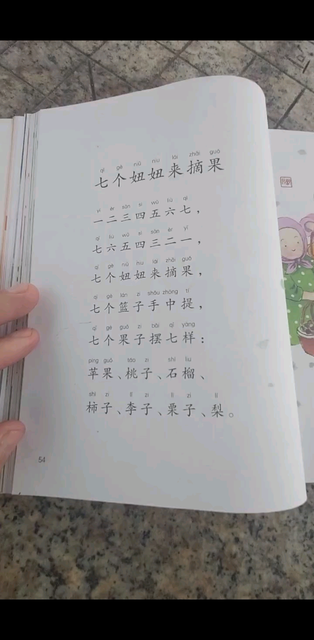 qī gè niū niu lái zhāi guǒ
七个妞妞来摘果
yī èr sān sì wǔ liù qī
一二三四五六七，
qī liù wǔ sì sān èr yī
七六五四三二一，
qī gè niū niu lái zhāi guǒ
七个妞妞来摘果，
qī gè lán zi shǒu zhōng tí
七个篮子手中提，
qī gè guǒ zi bǎi qī yàng
七个果子摆七样：
píng guǒ táo zi shí liu
苹果、桃子、石榴、
shì zi lǐ zi lì zi lí
柿子、李子、栗子、梨。
54